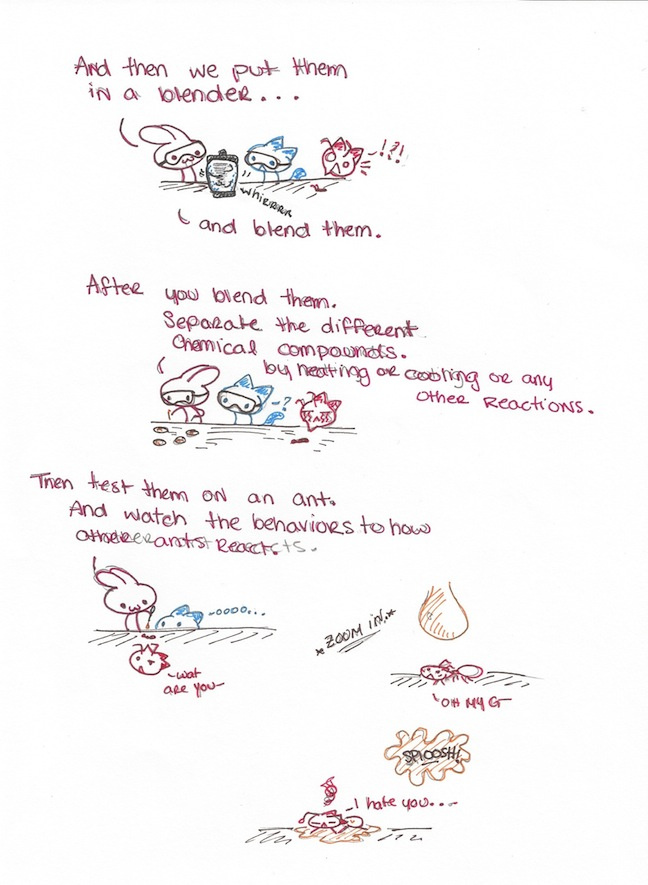 And then we put them
in a blender...
-!?!
whirrrr
and blend them.
After you blend them.
Separate the different
chemical compounds.
by heating or cooling or any
other reactions.
-?
Then test them on an ant.
And watch the behaviors to how
other ants react.
-oooo...
-wat
are you-
*ZOOM IN.*
OH MY G-
SPLOOSH!
-I hate you...-